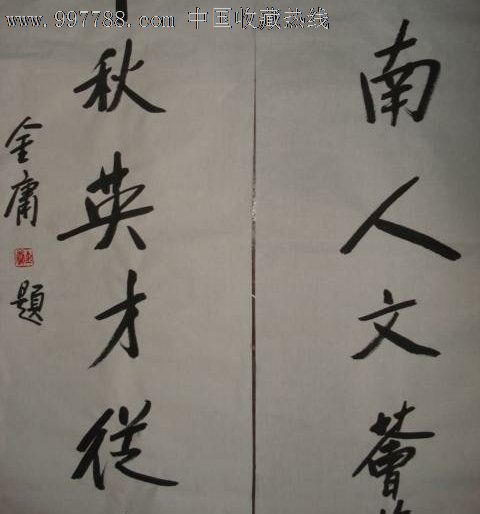 www.997788.com 中国收藏热线
南人文薈
秋英才從
金庸題